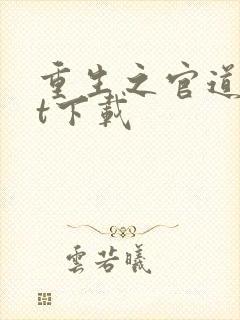 重生之官道
t下载
云若曦